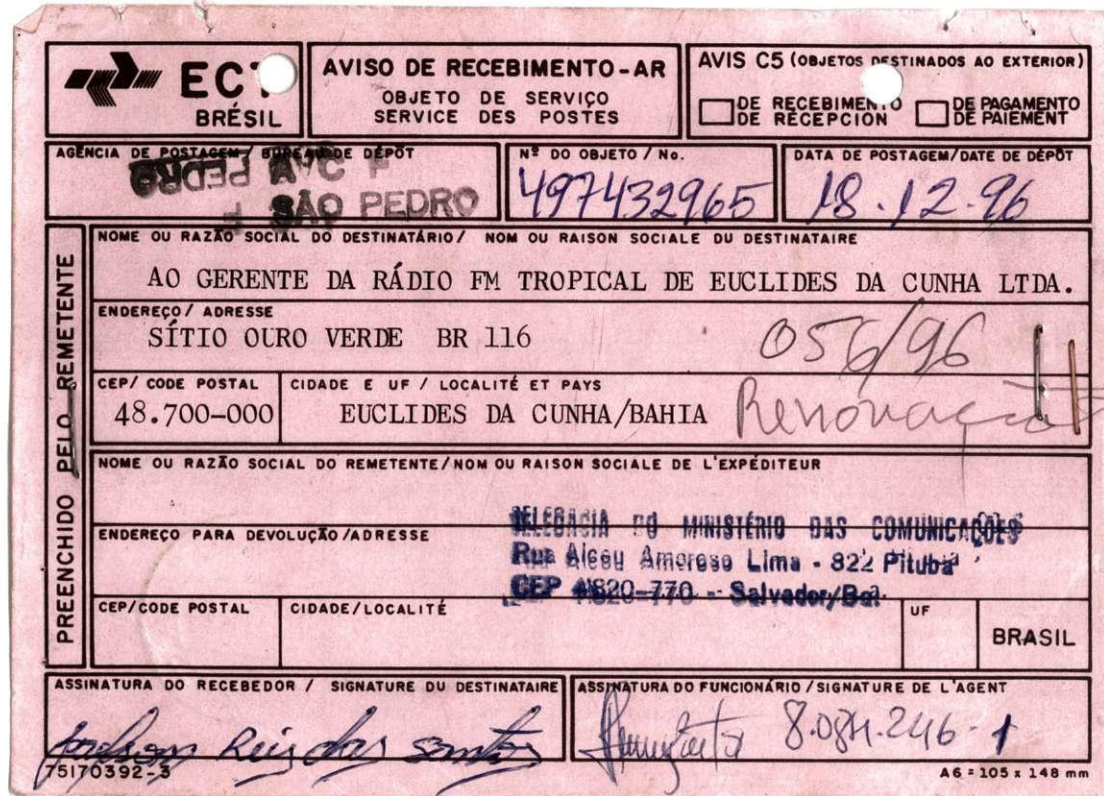 ECT
BRÉSIL
AVISO DE RECEBIMENTO-AR
OBJETO DE SERVIÇO
SERVICE DES POSTES
AVIS C5 (OBJETOS DESTINADOS AO EXTERIOR)
DE RECEBIMENTO
DE RÉCEPCION
DE PAGAMENTO
DE PAIEMENT
AGÊNCIA DE POSTAGEM / BUREAU DE DÉPÔT
SÃO PEDRO
Nº DO OBJETO / No.
497432965
DATA DE POSTAGEM/DATE DE DÉPÔT
18.12.96
PREENCHIDO PELO REMETENTE
NOME OU RAZÃO SOCIAL DO DESTINATÁRIO/ NOM OU RAISON SOCIALE DU DESTINATAIRE
AO GERENTE DA RÁDIO FM TROPICAL DE EUCLIDES DA CUNHA LTDA.
ENDEREÇO/ ADRESSE
SÍTIO OURO VERDE BR 116
056/96
CEP/ CODE POSTAL
48.700-000
CIDADE E UF / LOCALITÉ ET PAYS
EUCLIDES DA CUNHA/BAHIA
Renovação
NOME OU RAZÃO SOCIAL DO REMETENTE/NOM OU RAISON SOCIALE DE L'EXPÉDITEUR
DELEGACIA DO MINISTÉRIO DAS COMUNICAÇÕES
ENDEREÇO PARA DEVOLUÇÃO/ADRESSE
Rua Alceu Amoroso Lima - 822 Pituba
CEP 41820-770 - Salvador/Ba.
CEP/CODE POSTAL
CIDADE/LOCALITÉ
UF
BRASIL
ASSINATURA DO RECEBEDOR / SIGNATURE DU DESTINATAIRE
Reis dos Santos
ASSINATURA DO FUNCIONÁRIO/SIGNATURE DE L'AGENT
8.084.246-1
75170392-3
A6 = 105 x 148 mm